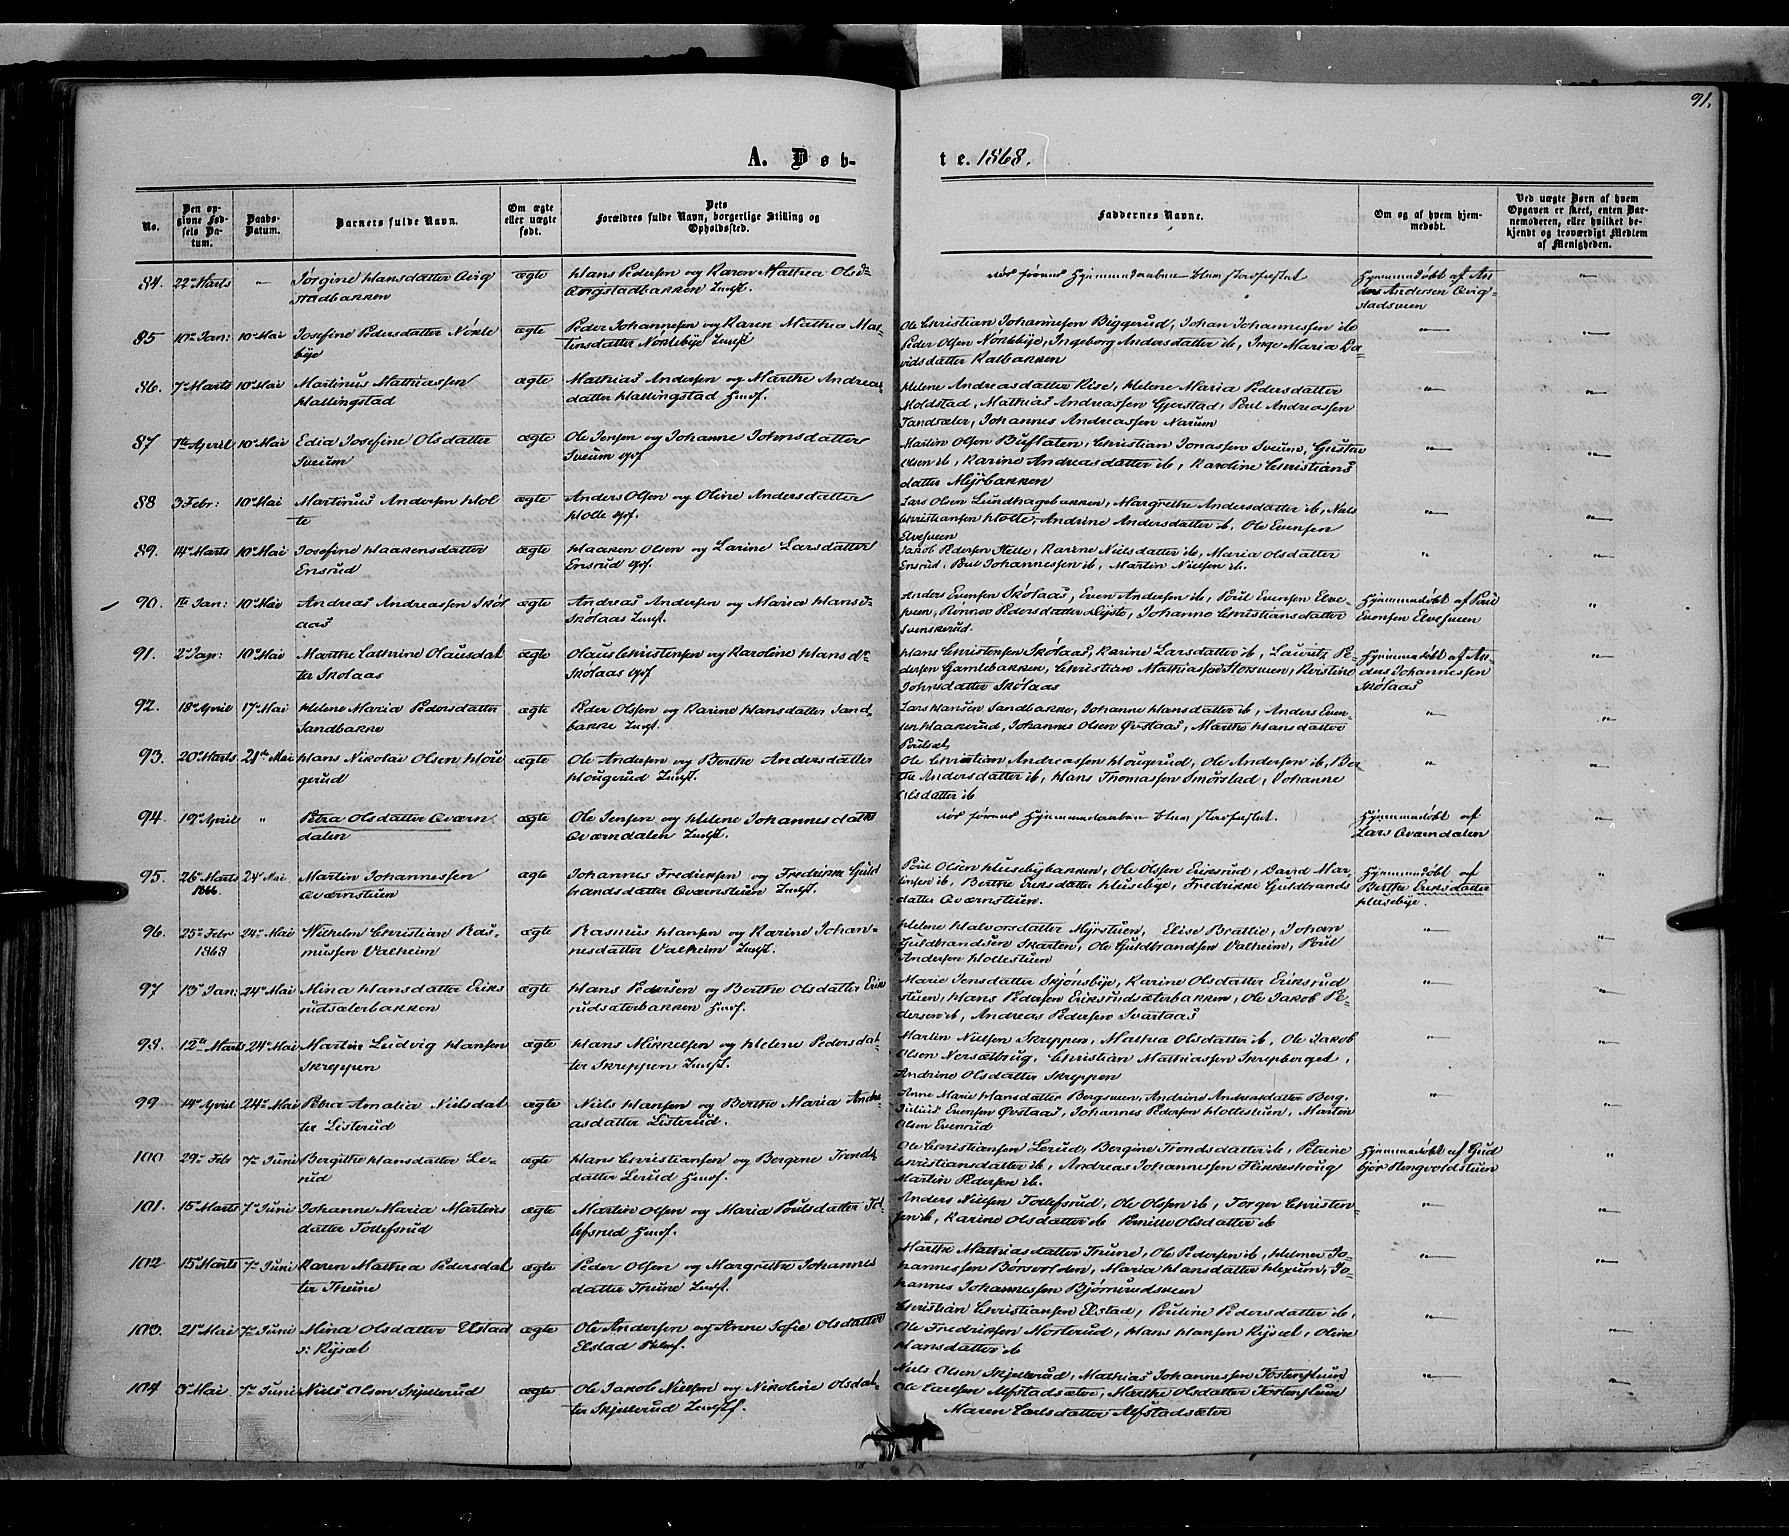 91.
A. Døb-
te. 1868.
No.
Den op-
givne Fød-
sels Da-
tum.
Daabs-
Datum.
Barnets fulde Navn.
Om ægte
eller uægte
født.
Dets
Forældres fulde Navn, borgerlige Stilling og
Opholdssted.
Faddernes Navne.
Om og af hvem hjem-
medøbt.
Ved uægte Børn af hvem
Opgaven er skeet, enten Bar-
nemoderen, eller hvilket be-
kjendt og troværdigt Medlem
af Menigheden.
84. 22de Marts " Jørgine Hansdatter Qvig
stadbakken
ægte
Hans Pedersen og Karen Mathea Olsd.
Qvigstadbakken Inst.
død førend Hjemmedaaben blev stadfæstet
Hjemmedøbt af An
ders Andersen Qvig-
stadsveen
85 10de Jan: 10de Mai Josefine Pedersdatter Nøkle
bye
ægte
Peder Johannesen og Karen Mathea Mar-
tinsdatter Nøklebye Inst
Ole Christian Johannesen Biggerud, Johan Johannessen ib
Peder Olsen Nøklebye, Ingeborg Andersdatter ib, Inge Maria Da-
vidsdatter Kalbakken
86. 7de Marts 10de Mai Martinus Mathiassen
Hallingstad
ægte
Mathias Andersen og Marthe Andreas-
datter Hallingstad Husf.
Helene Andreasdatter Rise, Helene Maria Pedersdatter
Moldstad, Mathias Andreassen Gjerstad, Poul Andreassen
Tandsæter, Johannes Andreassen Narum
87 1ste April 10de Mai Edia Josefine Olsdatter
Sveum
ægte
Ole Jensen og Johanne Johnsdatter
Sveum
Martin Olsen Buflaten, Christian Jonassen Sveum, Gustav
Olsen ib, Karine Andreasdatter ib, Karoline Christians
datter Myrbakken
88 3 Febr: 10de Mai Martinus Andersen Hol
te
ægte
Anders Olsen og Oline Andersdatter
Holte
Lars Olsen Lundhagebakken, Margrethe Andersdatter ib, Niels
Christiansen Holte, Andrine Andersdatter ib, Ole Evensen
Elvesveen
89. 14de Marts 10de Mai Josefine Haakensdatter
Ensrud
ægte
Haaken Olsen og Larine Larsdatter
Ensrud
Jakob Pedersen Stelle, Karine Nielsdatter ib, Maria Olsdatter
Ensrud, Poul Johannessen ib, Martin Nielsen ib.
90. 1ste Jan: 10de Mai Andreas Andreassen Skøl
aas
ægte
Andreas Andersen og Maria Hansd.
Skølaas Inst.
Anders Evensen Skølaas, Even Andersen ib, Poul Evensen Elve-
sveen, Rønnov Pedersdatter Lyste, Johanne Christiansdatter
Svenskerud.
Hjemmedøbt af Poul
Evensen Elvesveen
91. 2de Jan: 10de Mai Marthe Cathrine Olausdat
ter Skølaas
ægte
Olaus Christensen og Karoline Hansdr
Skølaas
Hans Christensen Skølaas, Karine Larsdatter ib, Lauritz Pe-
dersen Gamlebakken, Christian Mathiassen Horsveen, Kerstine
Johnsdatter Skølaas
Hjemmedøbt af An-
ders Johannessen
Skølaas
92. 18de April 17de Mai Helene Maria Pedersdatter
Sandbakke
ægte
Peder Olsen og Karine Hansdatter Sand-
bakke Inst.
Lars Hansen Sandbakke, Johanne Hansdatter ib, Anders Even-
sen Haakerud, Johannes Olsen Øvstaas, Marthe Hansdatter
Poulsæt
93. 20de Marts 21de Mai Hans Nikolai Olsen Hou
gerud
ægte
Ole Andersen og Berthe Andersdatter
Hougerud Inst.
Ole Christian Andreassen Hougerud, Ole Andersen ib, Ber
the Andersdatter ib, Hans Thomassen Smørstad, Johanne
Olsdatter ib
94. 19de April " Petra Olsdatter Qværn
dalen
ægte
Ole Jensen og Helene Johannesdatter
Qværndalen Inst.
død førend Hjemmedaaben blev stadfæstet.
Hjemmedøbt af
Lars Qværndalen
95. 26de Marts
1866
24de Mai Martin Johannessen
Qværnstuen
ægte
Johannes Frederiksen og Fredrikke Guld
brandsdatter Qværnstuen Inst.
Poul Olsen Husebybakken, Ole Olsen Eriksrud, David Mar-
tinsen ib, Berthe Eriksdatter Husebye, Fredrikke Guldbrands
datter Qværnstuen.
Hjemmedøbt af
Berthe Eriksdatter
Husebye.
96. 25de Febr
1868
24de Mai Wilhelm Christian Ras-
mussen Valheim
ægte
Rasmus Hansen og Karine Johan-
nesdatter Valheim Inst.
Helene Halvorsdatter Myrstuen, Elise Brattlie, Johan
Guldbrandsen Skarten, Ole Guldbrandsen Valheim, Poul
Andersen Hollestuen
97 13de Jan: 24de Mai Mina Hansdatter Eriks
rudsæterbakken
ægte
Hans Pedersen og Berthe Olsdatter Erik
rudsæterbakken Husf.
Marie Jensdatter Skjønsbye, Karine Olsdatter Eriksrud
stuen, Hans Pedersen Eriksrudsæterbakken, Ole Jakob Pe-
dersen ib, Andreas Pedersen Svartaas
98. 12te Marts 24de Mai Martin Ludvig Hansen
Skreppen
ægte
Hans Mikkelsen og Helene Pedersdat-
ter Skreppen Inst.
Martin Nielsen Skreppen, Mathea Olsdatter ib, Ole Jakob
Olsen Nersætbrug, Christian Mathiassen Skrepberget,
Andrine Olsdatter Skreppen
99 14de April 24de Mai Petra Amalia Nielsdat
ter Listerud
ægte
Niels Hansen og Berthe Maria Andre
asdatter Listerud.
Anne Marie Hansdatter Bergsveen, Andrine Andersdatter Berg.
Julius Evensen Øvstaas, Johannes Pedersen Hollestuen, Martin
Olsen Evenrud
100 29de Feb 7de Juni Bergithe Hansdatter Le-
rud
ægte
Hans Christiansen og Bergine Tronds
datter Lerud Husf.
Ole Christiansen Lerud, Bergine Trondsdatter ib, Petrine
Christiansdatter ib, Andreas Johannessen Flikkeshoug
Martin Pedersen ib.
Hjemmedøbt af Gud
bjør Ringvoldstuen
101. 15de Marts 7de Juni Johanne Maria Martins
datter Tollefsrud
ægte
Martin Olsen og Maria Poulsdatter Tol-
lefsrud Husf.
Anders Nielsen Tollefsrud, Ole Olsen ib, Torger Christen-
sen ib, Karine Olsdatter ib Pernille Olsdatter ib
102 15de Marts 7de Juni Karen Mathea Pedersdat
ter Thune
ægte
Peder Olsen og Margrethe Johannes
datter Thune Inst.
Marthe Mathiasdatter Thune, Ole Pedersen ib, Helmer Jo-
hannessen Børsvolden, Maria Hansdatter Hexum, Jo-
hannes Johannessen Bjørnerudsveen
103. 21de Mai 7de Juni Mina Olsdatter Elstad
s: Rysæt
ægte
Ole Andersen og Anne Sofie Olsdatter
Elstad
Christian Christiansen Elstad, Pouline Pedersdatter ib,
Ole Fredriksen Mosterud, Hans Hansen Rysæt, Oline
Hansdatter ib
104 3de Mai 7de Juni Niels Olsen Skjellerud
ægte
Ole Jakob Nielsen og Nikoline Olsdat-
ter Skjellerud
Niels Olsen Skjellerud, Mathias Johannessen Tostenstuen
Ole Carlsen Alfstadsæter, Marthe Olsdatter Tostenstuen
Maren Carlsdatter Alfstadsæter